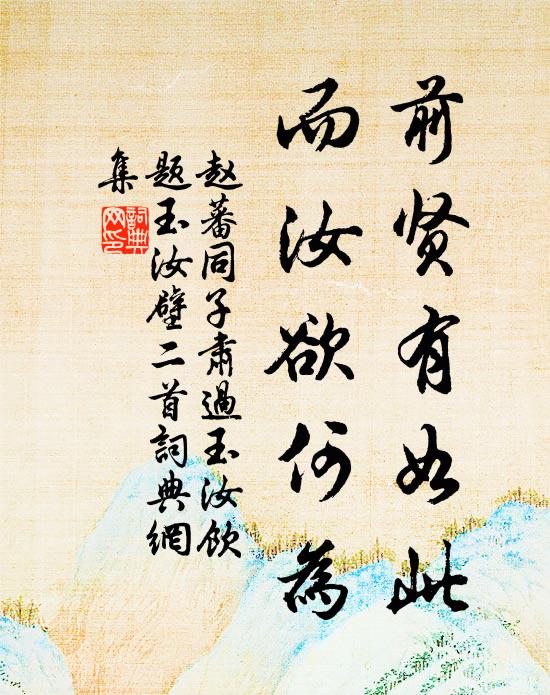 前贤有如此
而汝欲何為
赵蕃同子肃過玉汝飲
題玉汝壁二首詞典網
集
詞典
网印